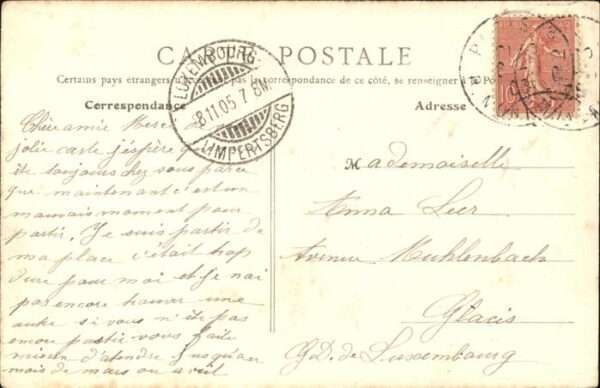 CARTE POSTALE
Certains pays étrangers n' pas la correspondance de ce côté, se renseigner à la Poste
Correspondance
Adresse
LUXEMBOURG-
8 11 05 7 8M.
LIMPERTSBERG
Chère amie Merci de
jolie carte j'espère que
ête toujours chez vous parce
que maintenant c'est un
mauvais moment pour
partir. Je suis partir de
ma place c'était trop
dure pour moi et je n'ai
pas encore trouver une
autre si vous n'ête pas
encore partir vous faite
mieux d'atendre jusqu'au
mois de mars ou avril
Mademoiselle
Anna Leer
Avenue Kuhlenbach
Glacis
G.D. de Luxembourg